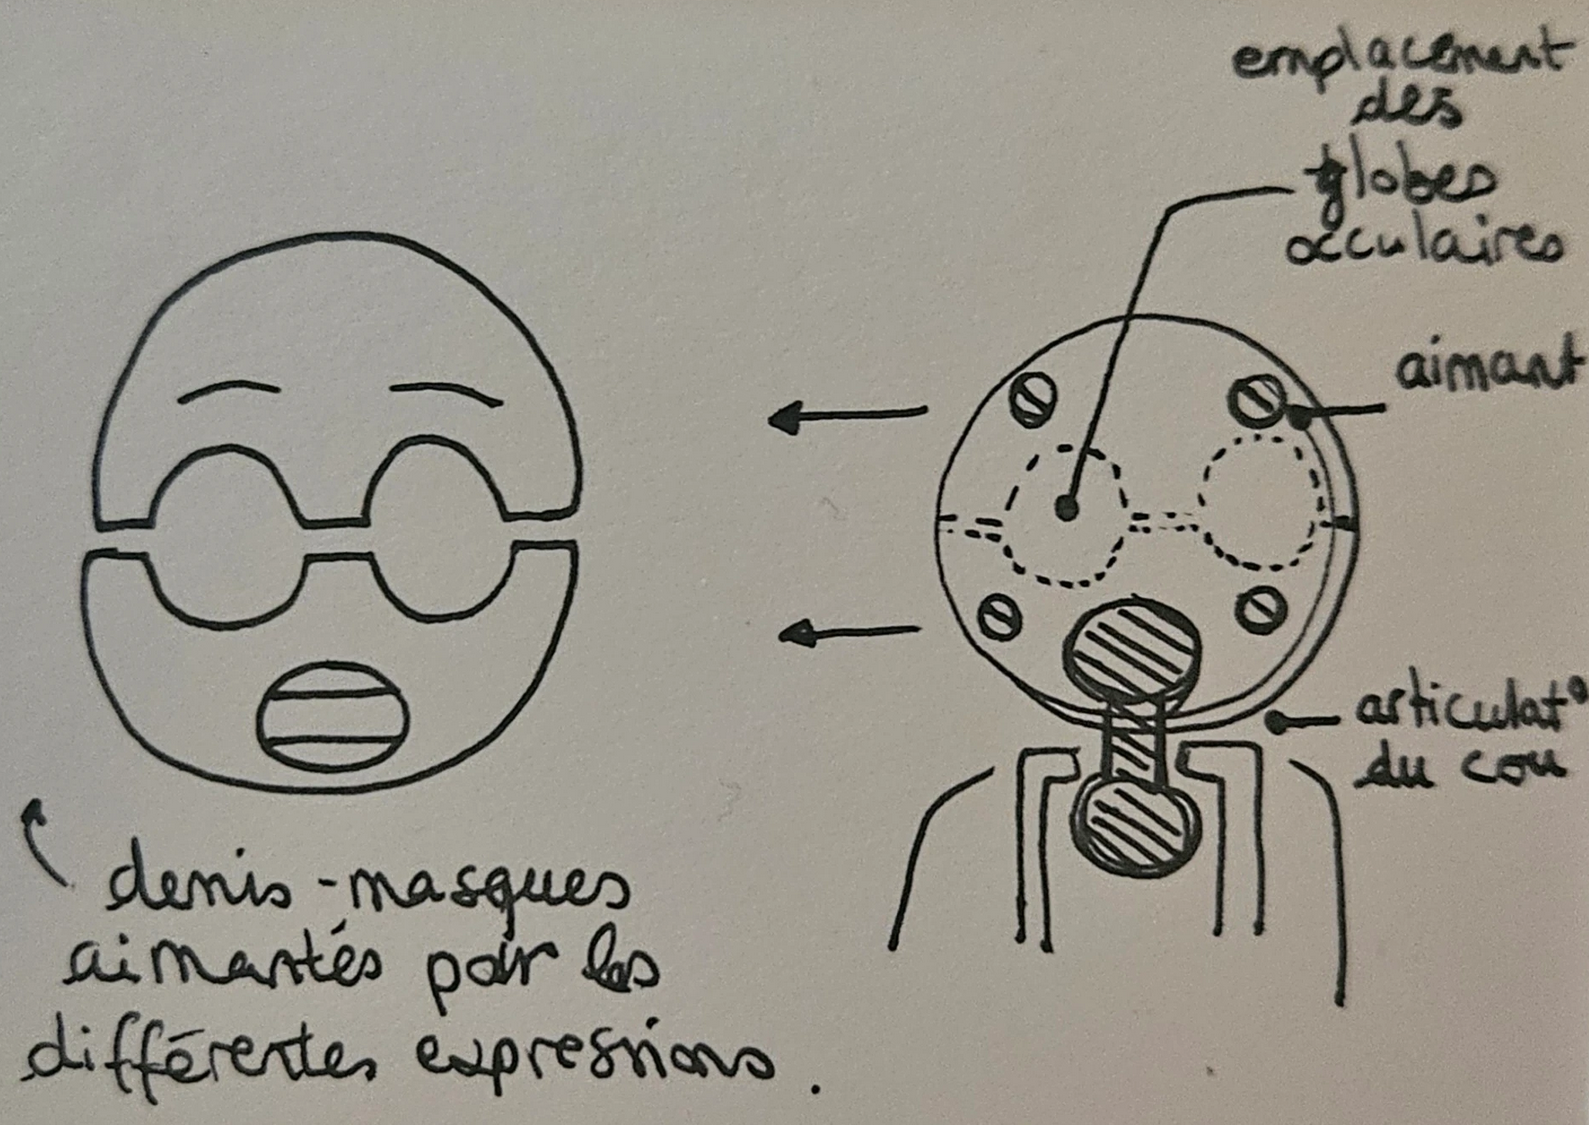 emplacement
des
globes
occulaires
aimant
articulat°
du cou
demis-masques
aimantés pour les
différentes expressions.